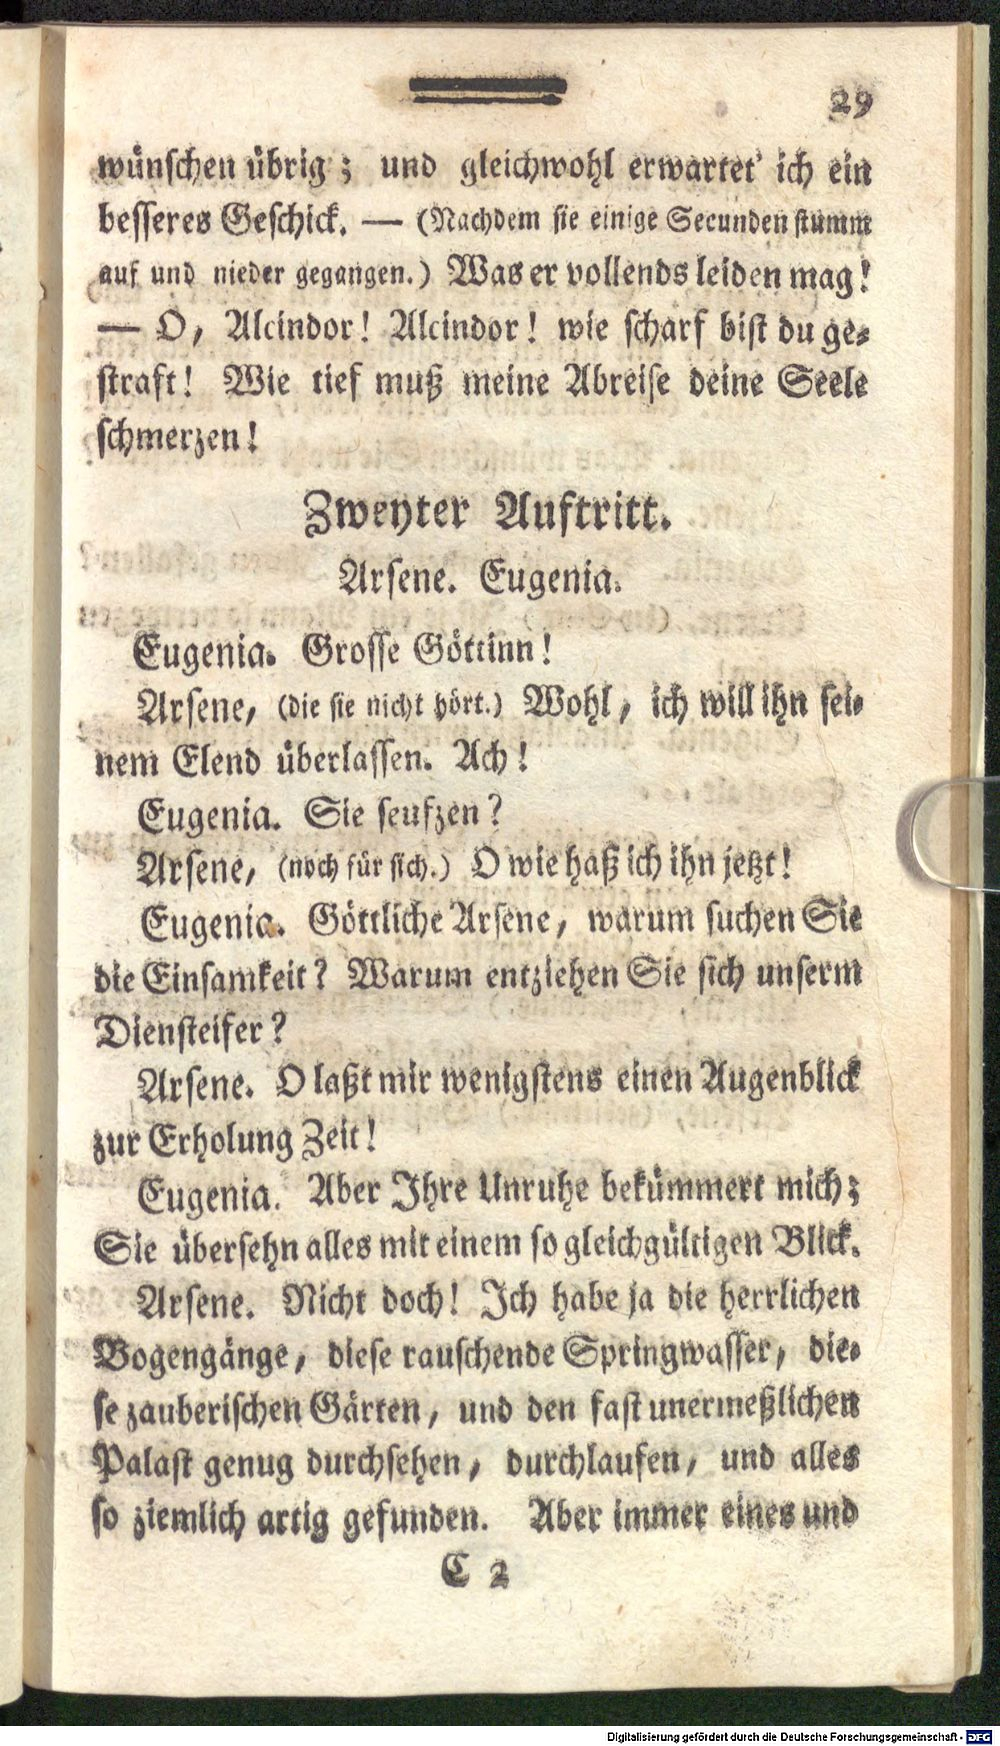 29
wünschen übrig; und gleichwohl erwartet' ich ein
besseres Geschick. — (Nachdem sie einige Secunden stumm
auf und nieder gegangen.) Was er vollends leiden mag!
— O, Alcindor! Alcindor! wie scharf bist du ge-
straft! Wie tief muß meine Abreise deine Seele
schmerzen!
Zweyter Auftritt.
Arsene. Eugenia.
Eugenia. Grosse Göttinn!
Arsene, (die sie nicht hört.) Wohl, ich will ihn sei-
nem Elend überlassen. Ach!
Eugenia. Sie seufzen?
Arsene, (noch für sich.) O wie haß ich ihn jetzt!
Eugenia. Göttliche Arsene, warum suchen Sie
die Einsamkeit? Warum entziehen Sie sich unserm
Diensteifer?
Arsene. O laßt mir wenigstens einen Augenblick
zur Erholung Zeit!
Eugenia. Aber Ihre Unruhe bekümmert mich;
Sie übersehn alles mit einem so gleichgültigen Blick.
Arsene. Nicht doch! Ich habe ja die herrlichen
Bogengänge, diese rauschende Springwasser, die-
se zauberischen Gärten, und den fast unermeßlichen
Palast genug durchsehen, durchlaufen, und alles
so ziemlich artig gefunden. Aber immer eines und
C 2
Digitalisierung gefördert durch die Deutsche Forschungsgemeinschaft - DFG